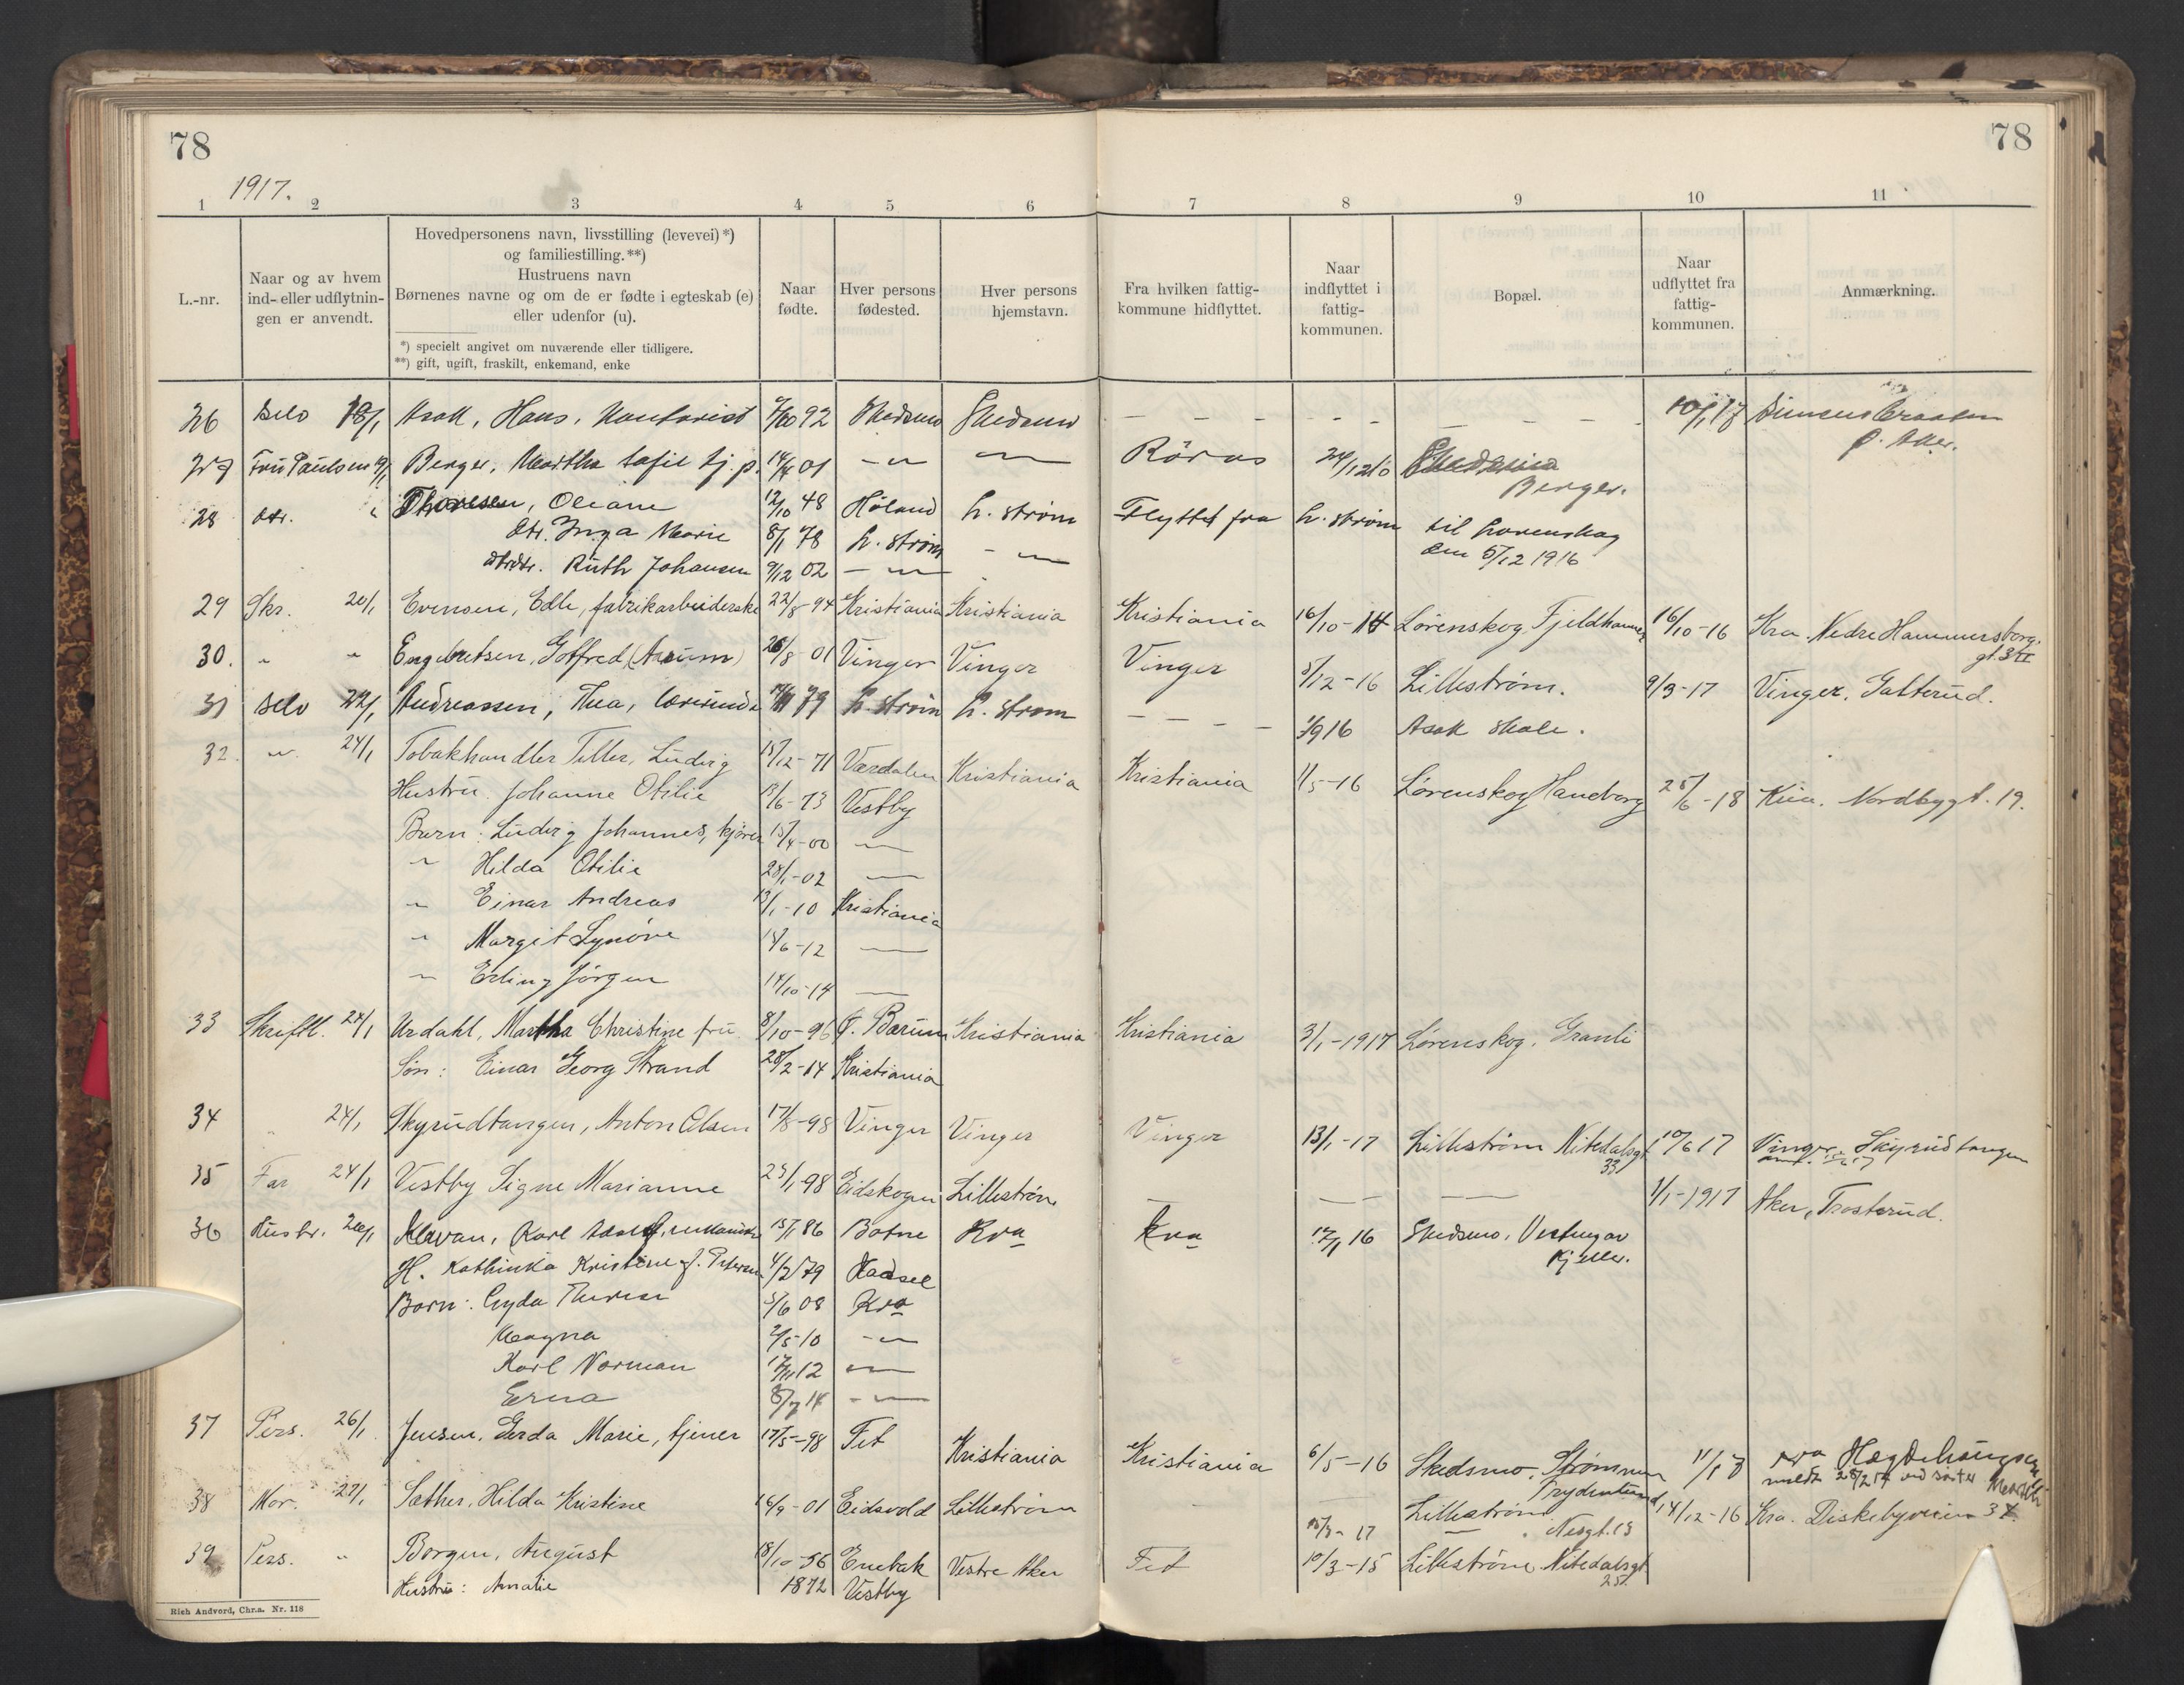 78
78
1917.
1 2 3 4 5 6 7 8 9 10 11
L.-nr.
Naar og av hvem ind- eller udflytningen er anvendt.
Hovedpersonens navn, livsstilling (levevei)*) og familiestilling.**)
Hustruens navn
Børnenes navne og om de er fødte i egteskab (e) eller udenfor (u).
*) specielt angivet om nuværende eller tidligere.
**) gift, ugift, fraskilt, enkemand, enke
Naar fødte.
Hver persons fødested.
Hver persons hjemstavn.
Fra hvilken fattigkommune hidflyttet.
Naar indflyttet i fattigkommunen.
Bopæl.
Naar udflyttet fra fattigkommunen.
Anmærkning.
26 Selv 18/1 Asak, Hans, Kontorist 92 Skedsmo Skedsmo – – – – – – – – 10/1 17
Ø. Aker.
27 Fru Paulsen Berger, Martha Sofie tj.p. 01 –„– –„– Röros Skedsmo
Berger.
28 dtr. Thoresen, Oleane 12/10 48 Höland L. ström Flyttet fra L. ström til Lørenskog
dtr. Inga Marie 8/1 78 L. ström –„– den 5/12 1916
dtrdtr. Ruth Johansen 9/12 02 –„–
29 Skr. 20/1 Evensen, Edle, fabrikarbeiderske 22/8-94 Kristiania Kristiania Kristiania 16/10-14 Lørenskog Fjeldhammer 16/10-16 Kra. Nedre Hammersborg.
gt. 3 II
30. „ „ Engebretsen, Gotfred 28/8-01 Vinger Vinger Vinger 5/12-16 Lilleström. 9/3-17 Vinger, Galterud.
31 Selv 22/1 Andreassen, Thea, lærerinde 79 L. ström L. strøm – – – – 1/9 16 Asak skole.
32. „ 24/1 Tobakhandler Tiller, Ludvig 15/12-71 Værdalen Kristiania Kristiania 1/5-16 Lørenskog Haneborg 25/6-18 Kra. Nordbygt. 19.
Hustru Johanne Otilie 13/6-73 Vestby
Barn: Ludvig Johannes, kjører 15/4-00 –„–
„ Hilda Otilie 28/1-02 –„–
„ Einar Andreas 13/1-10 Kristiania
„ Margit Synöve 14/6-12 –„–
„ Erling Jörgen 14/10-14 –„–
33 Skriftl. 24/1 Urdahl, Martha Christine fru 8/10-96 Ø. Bærum Kristiania Kristiania 3/1-1917 Lørenskog. Granli
Sön: Einar Georg Strand 28/2-14 Kristiania
34 „ 24/1 Skyrudtangen, Anton Olsen 17/8-98 Vinger Vinger Vinger 13/1-17 Lilleström Nitedalsgt. 10/6 17 Vinger, Skyrudtangen
33
35 Far 24/1 Vestby Signe Marianne 23/1-98 Eidskogen Lilleström — — — 1/1-1917 Aker, Trosterud.
36 Husbr. 26/1 Klevan, Karl Adolf, mekaniker 15/1 86 Botne Kra Kra 17/1 16 Skedsmo,
Kjeller.
H. Kathinka Kristine f. Petersen 4/2 79 Hadsel
Barn: Gyda Therese 5/6 08 Kra
Magna 2/5-10 –„–
Karl Norman 17/11 12 –„–
Erna 8/7 14 –„–
37 Pers. 26/1 Jensen, Gerda Marie, tjener 17/5-98 Fet Kristiania Kristiania 6/5-16 Skedsmo, Strømmen
Trydenlund
38 Mor. 27/1 Sæther, Hilda Kristine 16/9-01 Eidsvold Lilleström — Lilleström 14/12-16 Kra.
Nesgt. 13
39 Pers. „ Borgen, August 18/10-56 Enebak Vestre Aker Fet 10/3-15 Lilleström Nitedalsgt.
25.
Hustru: Amalie 1872 Vestby
Rich Andvord, Chr.a. Nr. 118